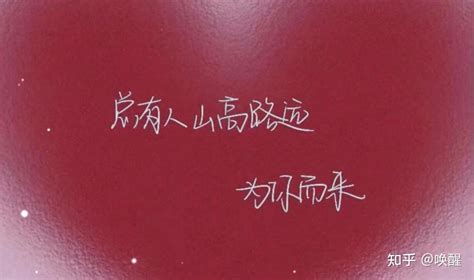 总有人山高路远
为你而来
知乎 @唤醒